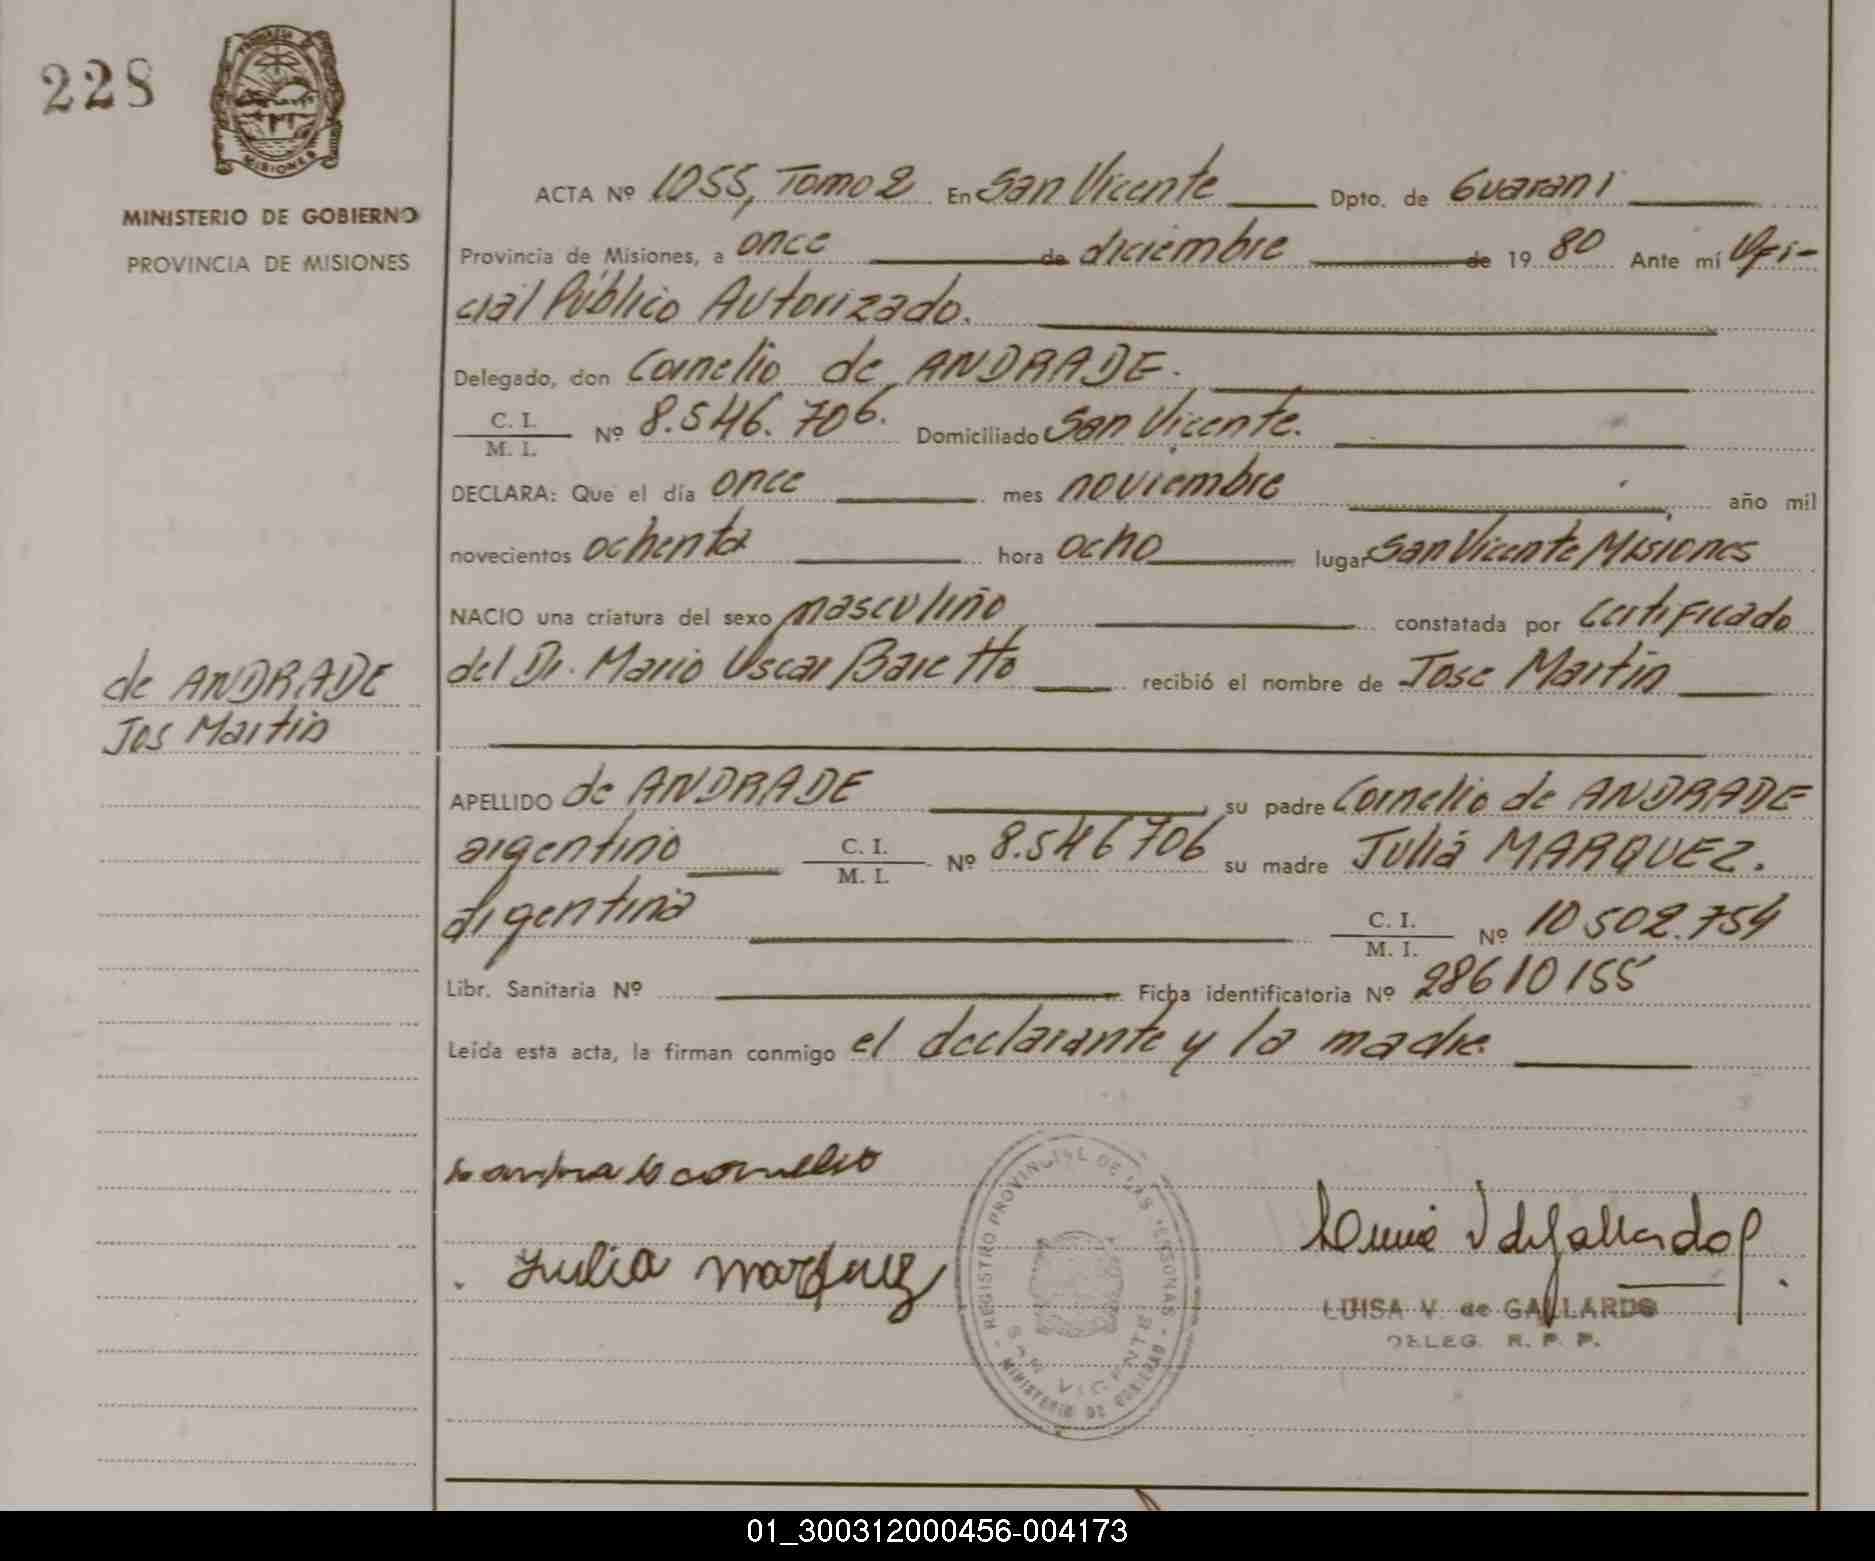 228
MISIONES
MINISTERIO DE GOBIERNO
PROVINCIA DE MISIONES
ACTA Nº 1055, Tomo 2 En San Vicente Dpto. de Guarani
Provincia de Misiones, a once de diciembre de 19 80 Ante mí Ofi-
cial Público Autorizado.
Delegado, don Cornelio de ANDRADE.
C. I.
M. I. Nº 8.546.706. Domiciliado San Vicente.
DECLARA: Que el día once mes noviembre año mil
novecientos ochenta hora ocho lugar San Vicente Misiones
NACIO una criatura del sexo masculino constatada por certificado
del Dr. Mario Oscar Baretto recibió el nombre de Jose Martin
de ANDRADE
Jos Martin
APELLIDO de ANDRADE su padre Cornelio de ANDRADE
argentino C. I. M. I. Nº 8.546 706 su madre Julia MARQUEZ.
argentina C. I. M. I. Nº 10 502.754
Libr. Sanitaria Nº Ficha identificatoria Nº 28610155
Leída esta acta, la firman conmigo el declarante y la madre.
cornelio
Julia Marquez
REGISTRO PROVINCIAL DE LAS PERSONAS
SAN VICENTE
MINISTERIO DE GOBIERNO
LUISA V. de GALLARDO
DELEG. R. P. P.
01_300312000456-004173